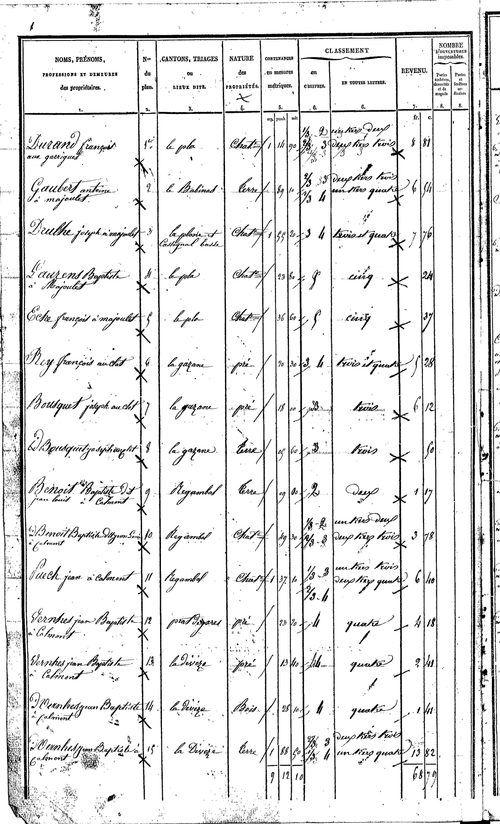 NOMS, PRÉNOMS,
PROFESSIONS ET DEMEURE
des propriétaires.
1.
Nos
du
plan.
2.
CANTONS, TRIAGES
ou
LIEUX DITS.
3.
NATURE
des
PROPRIÉTÉS.
4.
CONTENANCES
en mesures
métriques.
5.
CLASSEMENT
en
CHIFFRES.
6.
EN TOUTES LETTRES.
6.
REVENU.
7.
NOMBRE
D'OUVERTURES
imposables.
8.
8.
Durand françois
aux garrigues
1 le plo Chat. 1 14 90 1/3 2 un tiers deux
2/3 3 deux tiers trois 8 81
Gaubert antoine
à majoulet
2 Terre 89 10 2/3 3 deux tiers trois
1/3 4 un tiers quatre 6 54
Drulhe joseph à majoulet 3 la plane et
basse
Chat. 1 55 20 3 4 trois et quatre 7 76
Laurens Baptiste
à Majoulet
4 le plo Chat. 23 80 5 cinq 24
Eche françois à majoulet 5 le plo Chat. 36 60 5 cinq 37
Rey françois au clot 6 la gazane pré 20 30 3 4 trois et quatre 5 28
Bousquet joseph au clot 7 la gazane pré 18 3 trois 6 12
D Bousquet joseph au clot 8 la gazane Terre 05 60 3 trois 50
Benoit Baptiste dit
jean louis à Calmont
9 Regambal Terre 09 80 2 deux 1 17
D Benoit Baptiste
à Calmont
10 Regambal Chat. 49 30 1/3 2 un tiers deux
2/3 3 deux tiers trois 3 78
Puech jean à Calmont 11 Regambal Chat. 1 37 10 1/3 3 un tiers trois
2/3 4 deux tiers quatre 6 40
Vernhes jean Baptiste
à Calmont
12 pré 23 20 4 quatre 4 18
Vernhes jean Baptiste
à Calmont
13 la Divèze pré 13 40 4 quatre 2 41
D Vernhes jean Baptiste
à Calmont
14 la Divèze Bois 28 10 4 quatre 1 41
D Vernhes jean Baptiste à
Calmont
15 la Divèze Terre 1 88 50 2/3 3 deux tiers trois
1/3 4 un tiers quatre 13 82
9 12 10 68 79